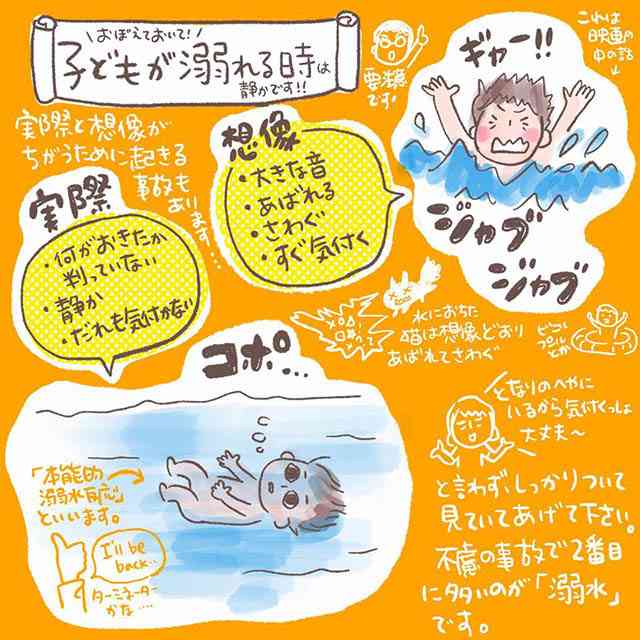 おぼえておいて!
子どもが溺れる時は
静かです!!
要注意
です!
これは
映画の
中の話
ギャー!!
実際と想像が
ちがうために起きる
事故も
あります…
想像
・大きな音
・あばれる
・さわぐ
・すぐ気付く
実際
・何がおきたか
判っていない
・静か
・だれも気付かない
ジャブ
ジャブ
水におちた
猫は想像どおり
あばれてさわぐ
ビニール
プールとか
コポ…
「本能的
溺水反応」
といいます。
I'll be
back…
ターミネーター
かな….
となりのへやに
いるから気付くっしょ
大丈夫〜
と言わず、しっかりついて
見ていてあげて下さい。
不慮の事故で2番目
に多いのが「溺水」
です。